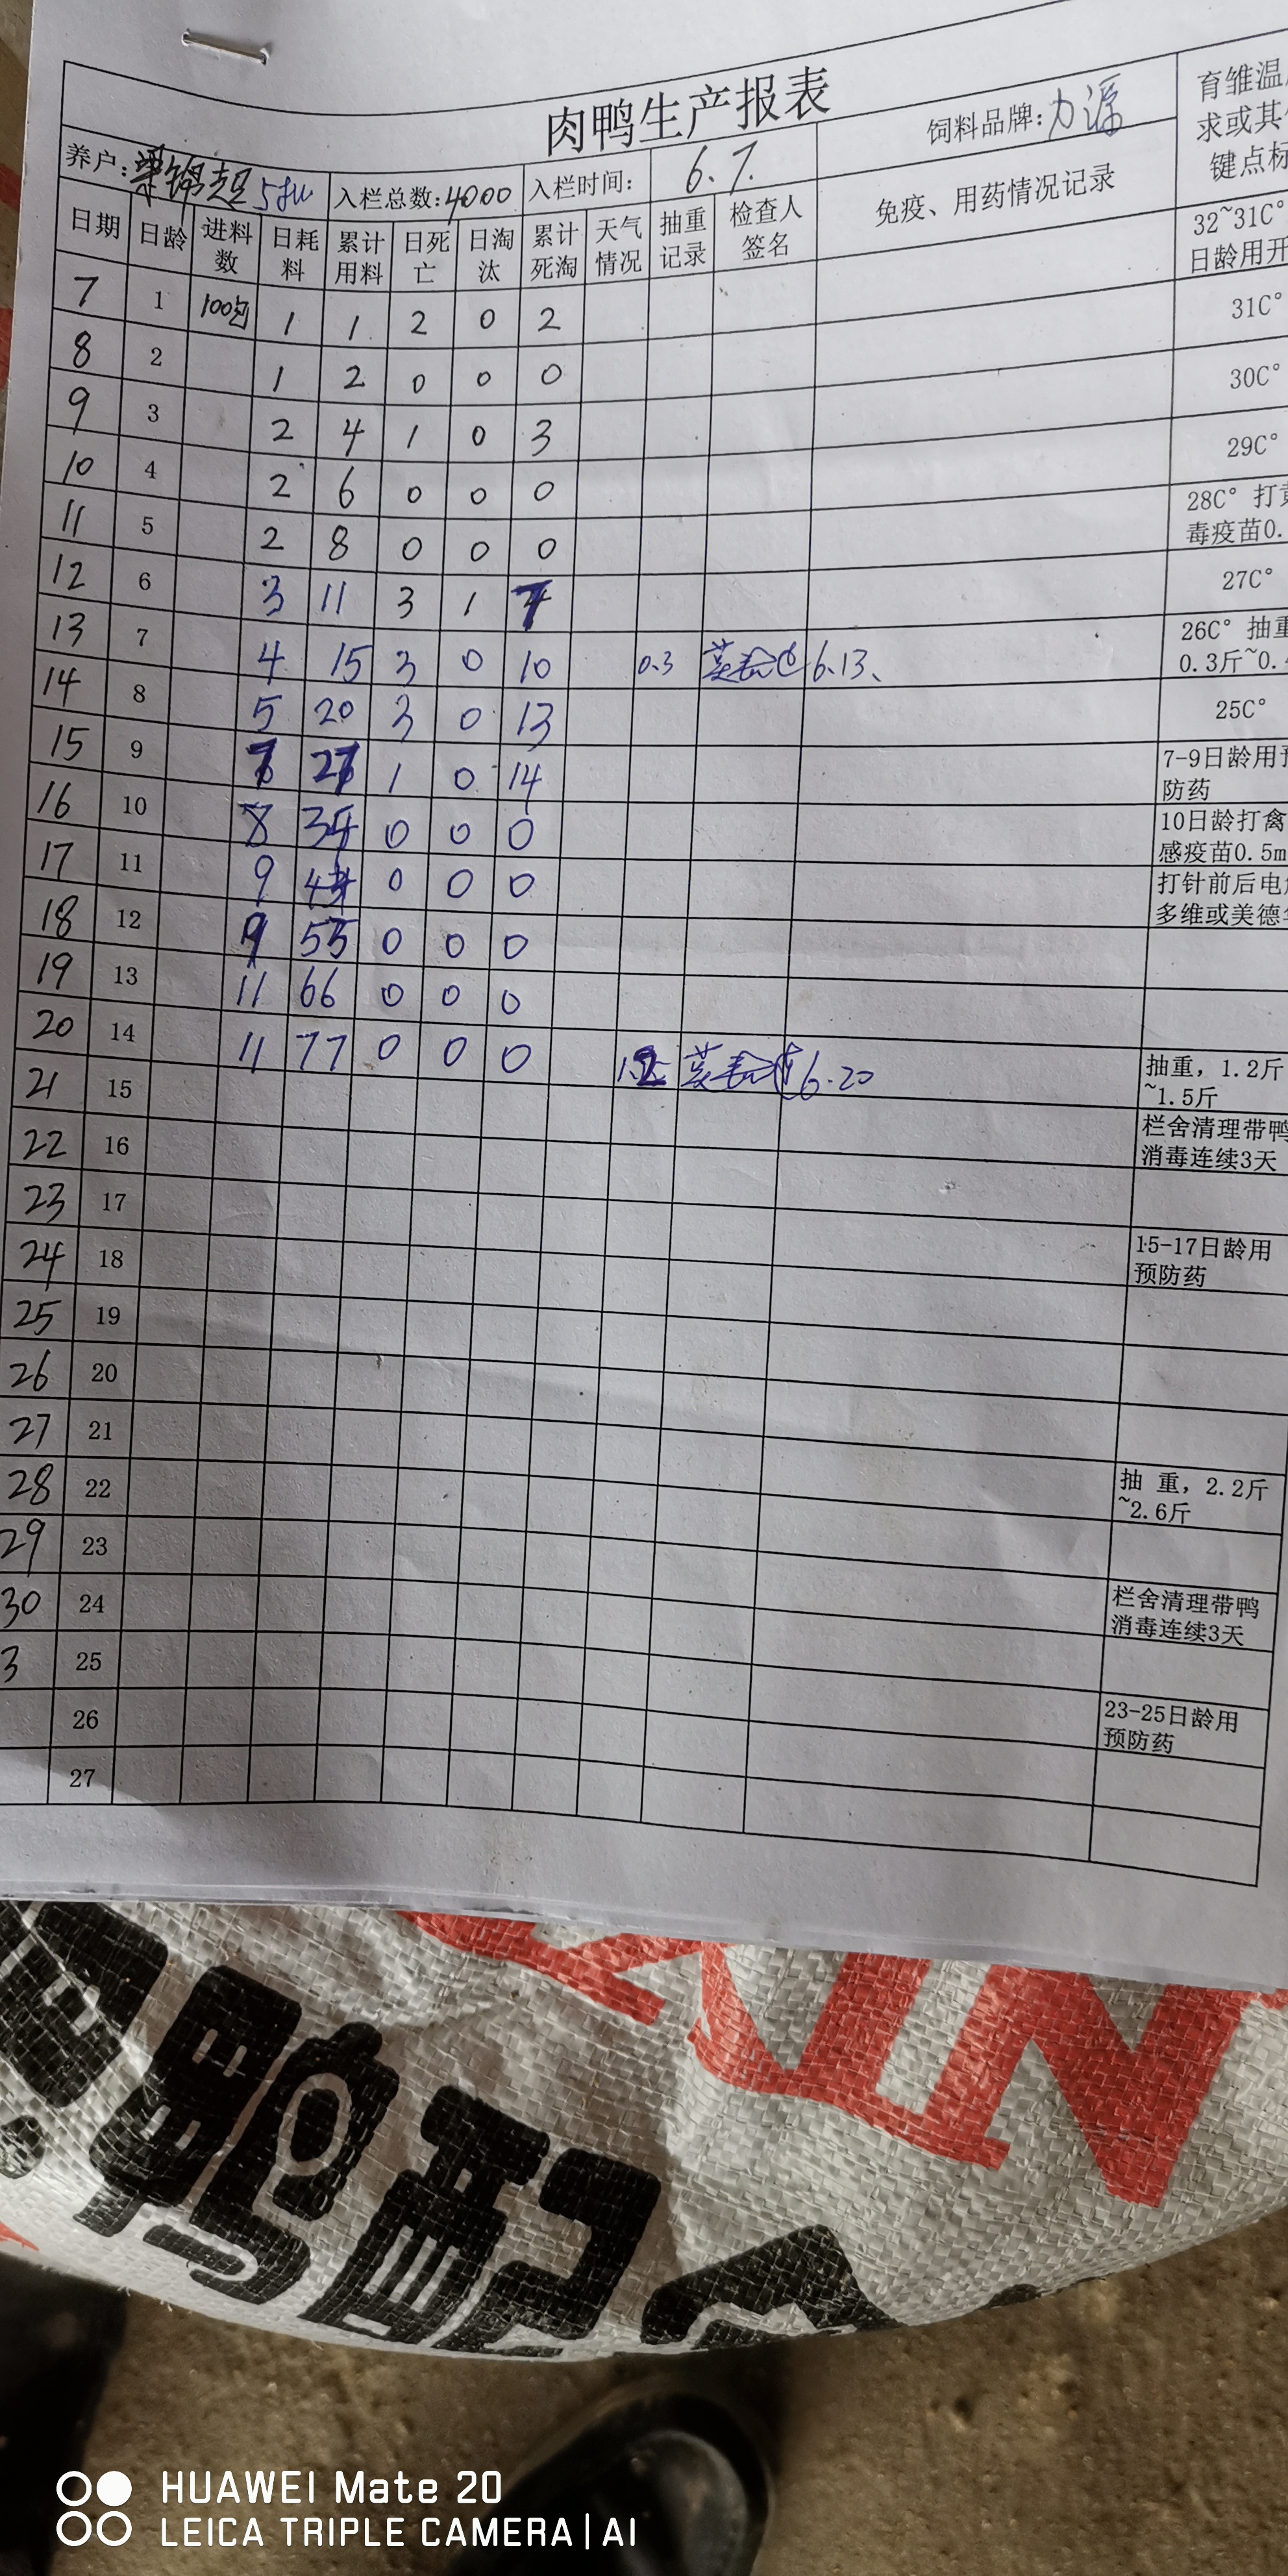 肉鸭生产报表
养户: 梁锦超 入栏总数: 4000 入栏时间: 6.7. 饲料品牌: 力源 育雏温
求或其
键点标
日期 日龄 进料数 日耗料 累计用料 日死亡 日淘汰 累计死淘 天气情况 抽重记录 检查人签名 免疫、用药情况记录
32~31C°
日龄用开
7 1 100包 1 1 2 0 2 31C°
8 2 1 2 0 0 0 30C°
9 3 2 4 1 0 3 29C°
10 4 2 6 0 0 0 28C° 打
毒疫苗0.
11 5 2 8 0 0 0
12 6 3 11 3 1 7 27C°
13 7 4 15 3 0 10 0.3 6.13、 26C° 抽重
0.3斤~0.
14 8 5 20 3 0 13 25C°
15 9 7 27 1 0 14 7-9日龄用预
防药
16 10 8 0 0 0 10日龄打禽
感疫苗0.5m
17 11 9 0 0 0 打针前后电
多维或美德
18 12 9 55 0 0 0
19 13 11 66 0 0 0
20 14 11 77 0 0 0 6.20 抽重, 1.2斤
~1.5斤
21 15
22 16 栏舍清理带鸭
消毒连续3天
23 17
24 18 15-17日龄用
预防药
25 19
26 20
27 21
28 22 抽 重, 2.2斤
~2.6斤
29 23
30 24 栏舍清理带鸭
消毒连续3天
3 25
26 23-25日龄用
预防药
27
鸭配
HUAWEI Mate 20
LEICA TRIPLE CAMERA | AI